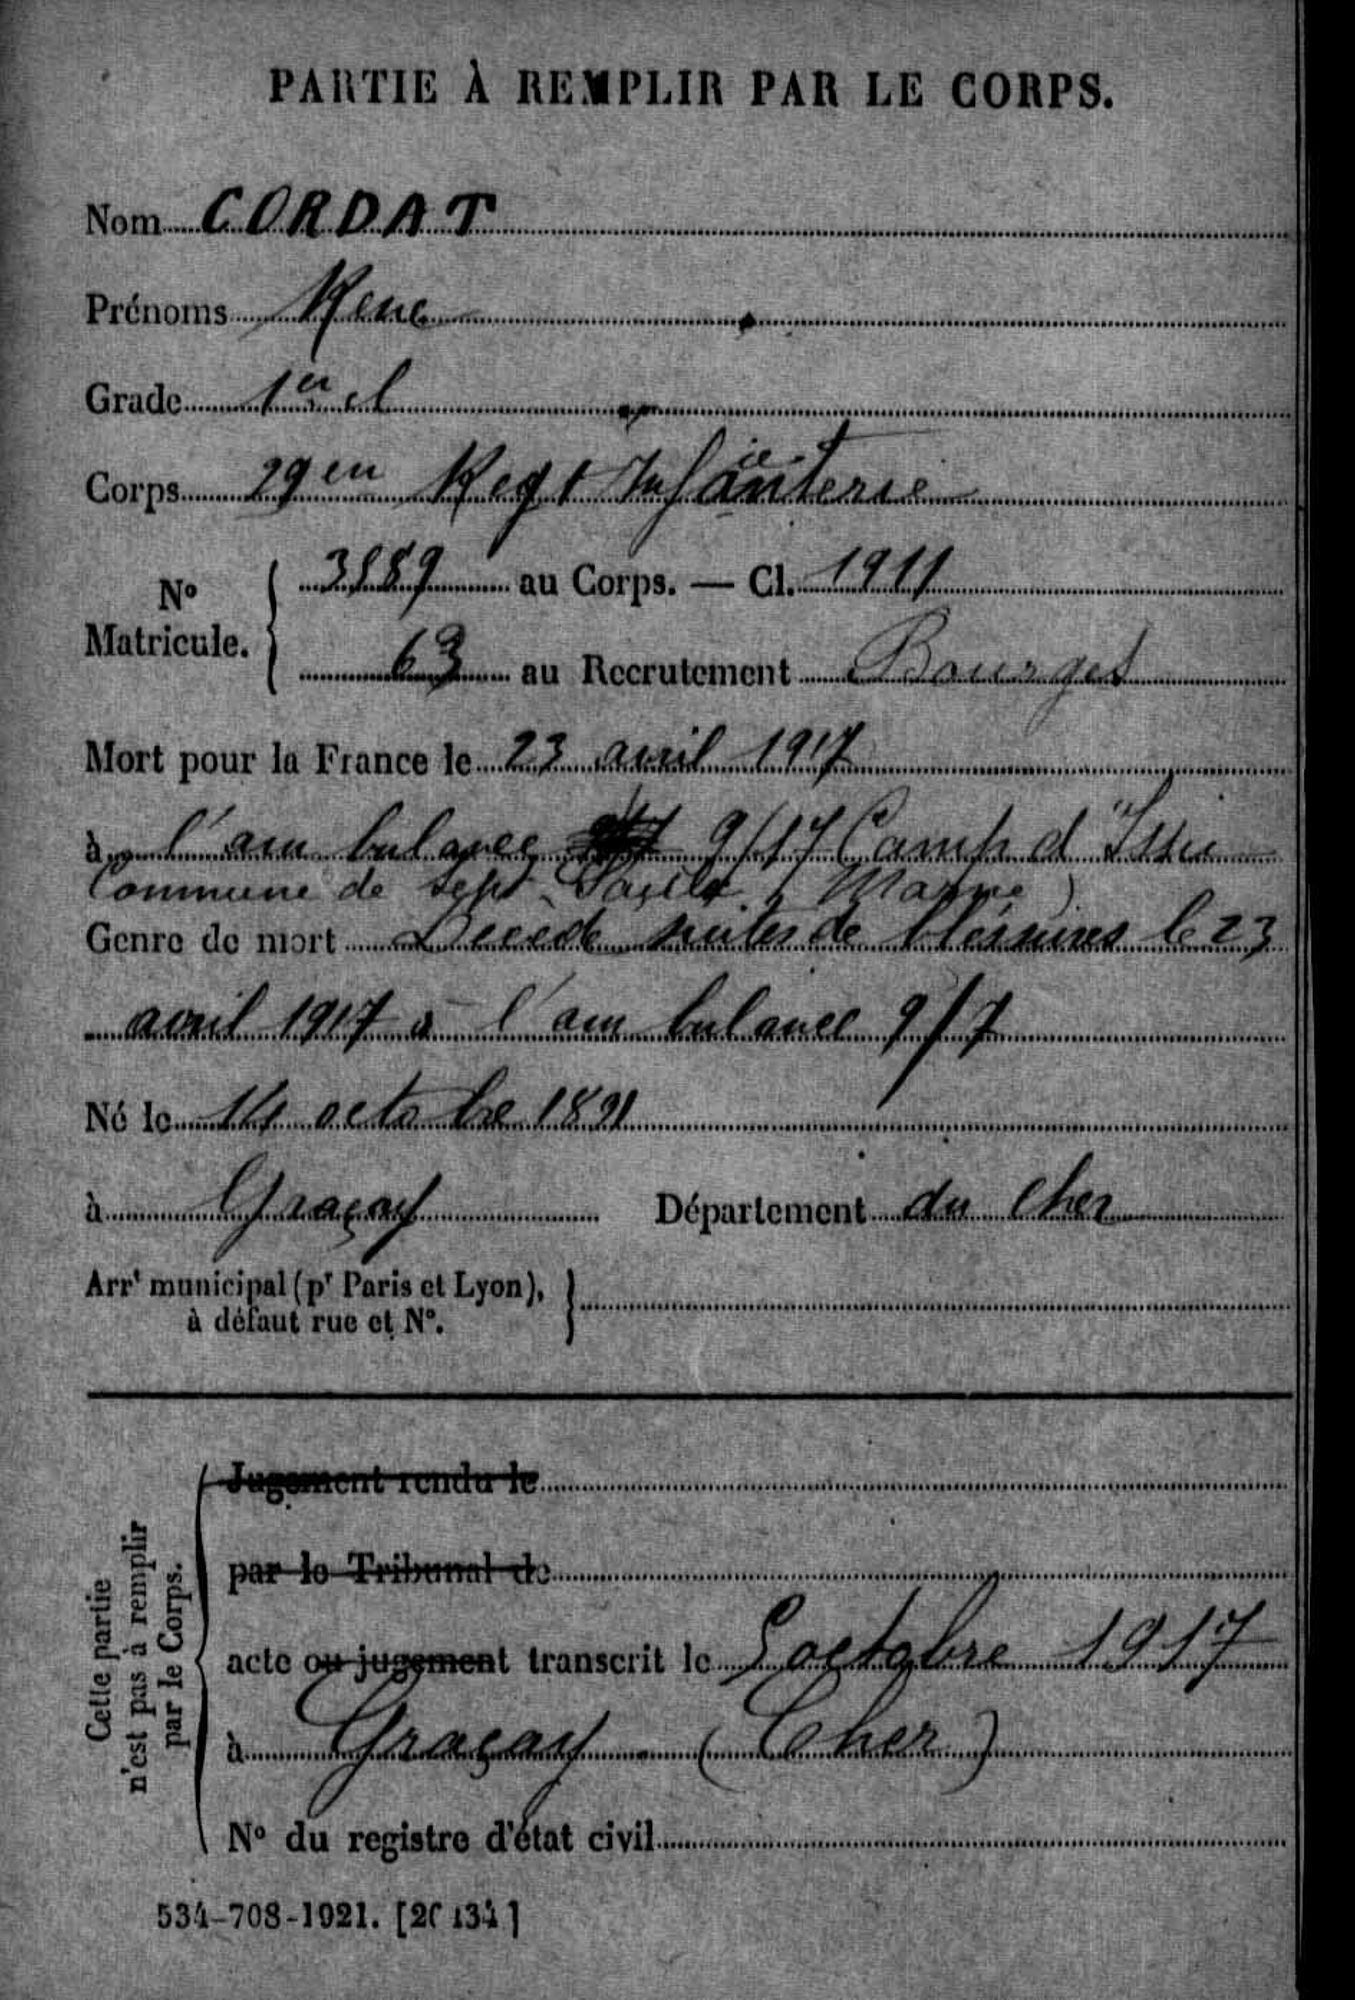 PARTIE À REMPLIR PAR LE CORPS.
Nom CORDAT
Prénoms René
Grade 1er cl
Corps 29en Regt Infanterie
No Matricule. 3889 au Corps. — Cl. 1911
63 au Recrutement Bourges
Mort pour la France le 23 avril 1917
à l'ambulance 9/17 Camp d'Issu
Commune de Sept-Saulx (Marne)
Genre de mort Décédé suites de blessures le 23
avril 1917 à l'ambulance 9/7
Né le 14 octobre 1891
à Graçay Département du Cher
Arrt municipal (pr Paris et Lyon),
à défaut rue et No.
Cette partie
n'est pas à remplir
par le Corps.
Jugement rendu le
par le Tribunal de
acte ou jugement transcrit le 5 octobre 1917
à Graçay (Cher)
No du registre d'état civil
534-708-1921. [26134]